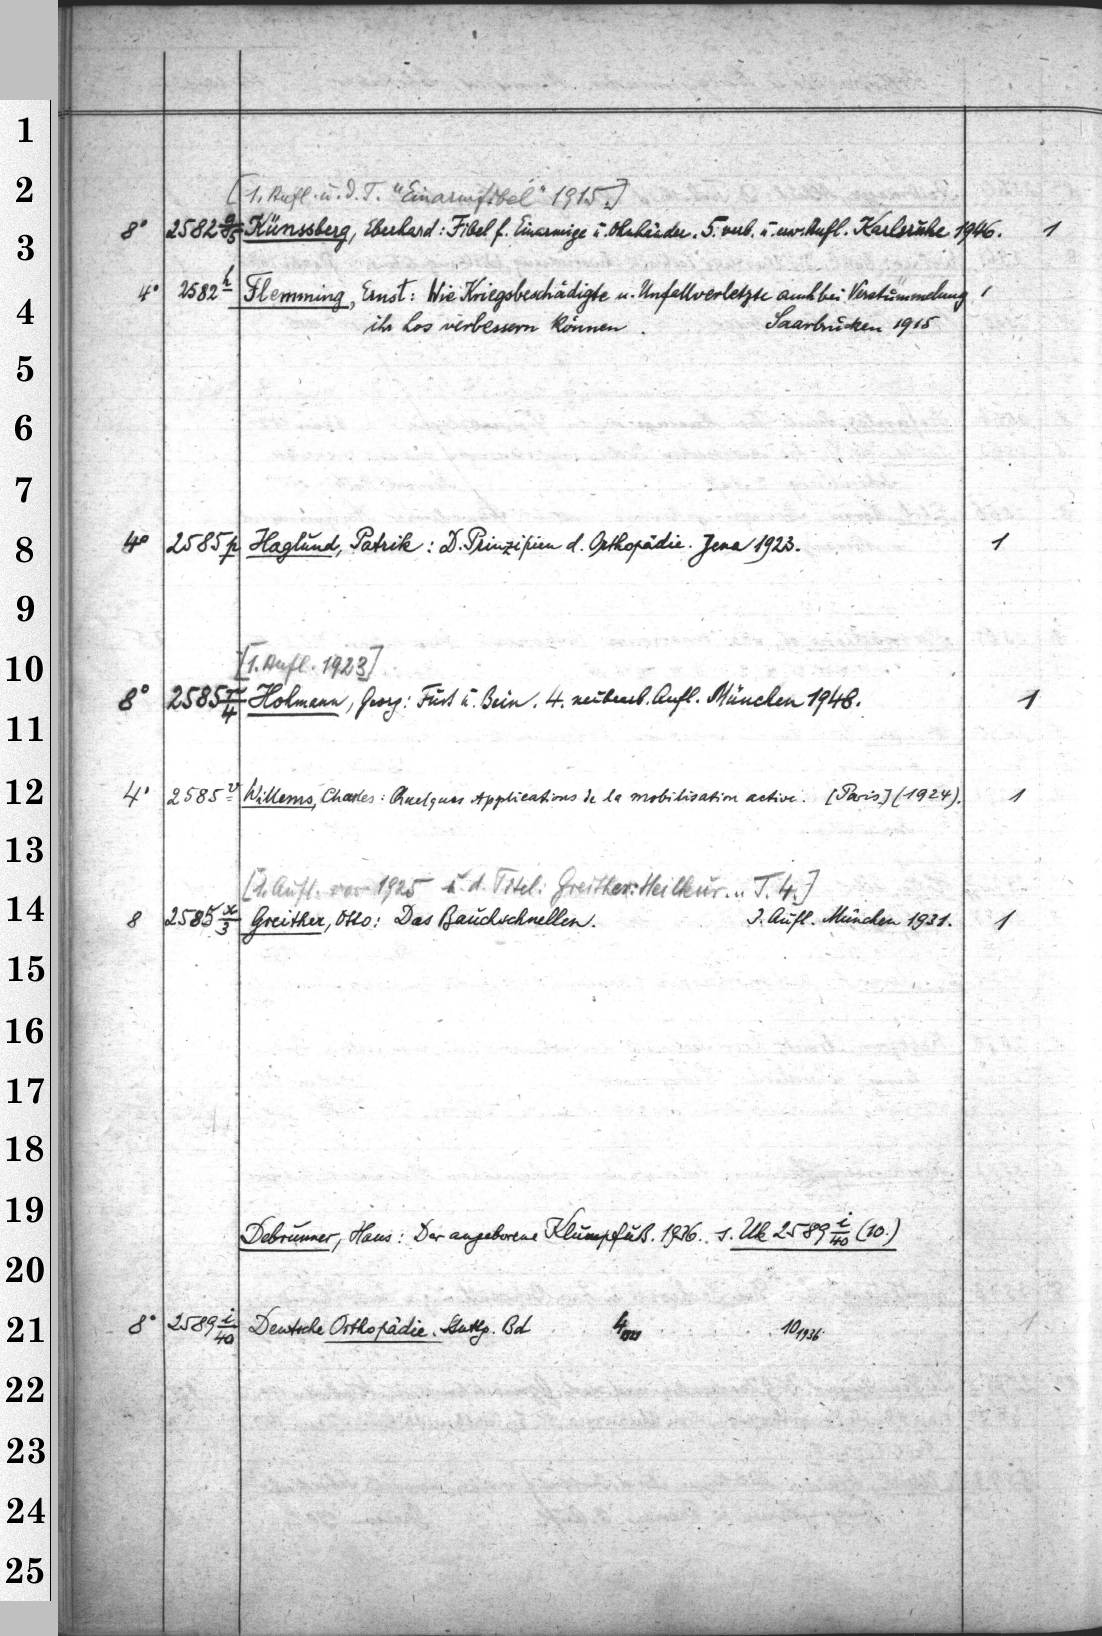 1
2
[1. Aufl. u. d. T. "Einarmfibel" 1915.]
3
8° 2582 g/85 Künssberg, Eberhard: Fibel f. Einarmige u. Ohnhänder. 5. verb. u. erw. Aufl. Karlsruhe 1946. 1
4° 2582 h Flemming, Ernst: Wie Kriegsbeschädigte u. Unfallverletzte auch bei Verstümmelung 1
4
ihr Los verbessern können. Saarbrücken 1915
5
6
7
8
4° 2585 p Haglund, Patrik: D. Prinzipien d. Orthopädie. Jena 1923. 1
9
10
[1. Aufl. 1923]
8° 2585 4 Hohmann, Georg: Fuß u. Bein. 4. neubearb. Aufl. München 1948. 1
11
12
4° 2585 v Willems, Charles: Quelques applications de la mobilisation active. [Paris] (1924). 1
13
[1. Aufl. vor 1925 u. d. Titel: Greither: Heilkur... T. 4.]
14
8 2585 x/3 Greither, Otto: Das Bauchschnellen. Aufl. München 1931. 1
15
16
17
18
19
Debrunner, Hans: Der angeborene Klumpfuß. 1936. s. Uk 2589 i/40 (10.)
20
21
8° 2589 i/40 Deutsche Orthopädie. Stuttg. Bd 4 10 1936
22
23
24
25